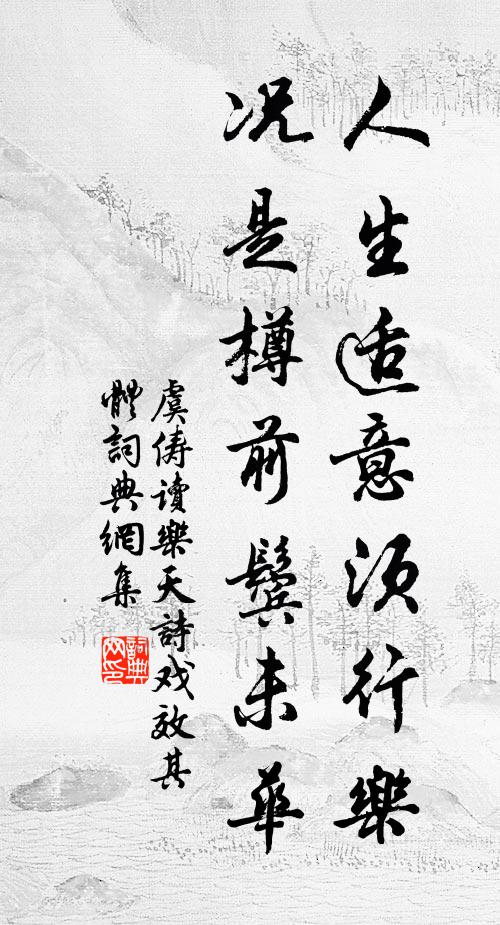 人生适意须行樂
况是樽前鬓未華
虞俦讀樂天詩戏效其
體詞典網集
詞典
网印